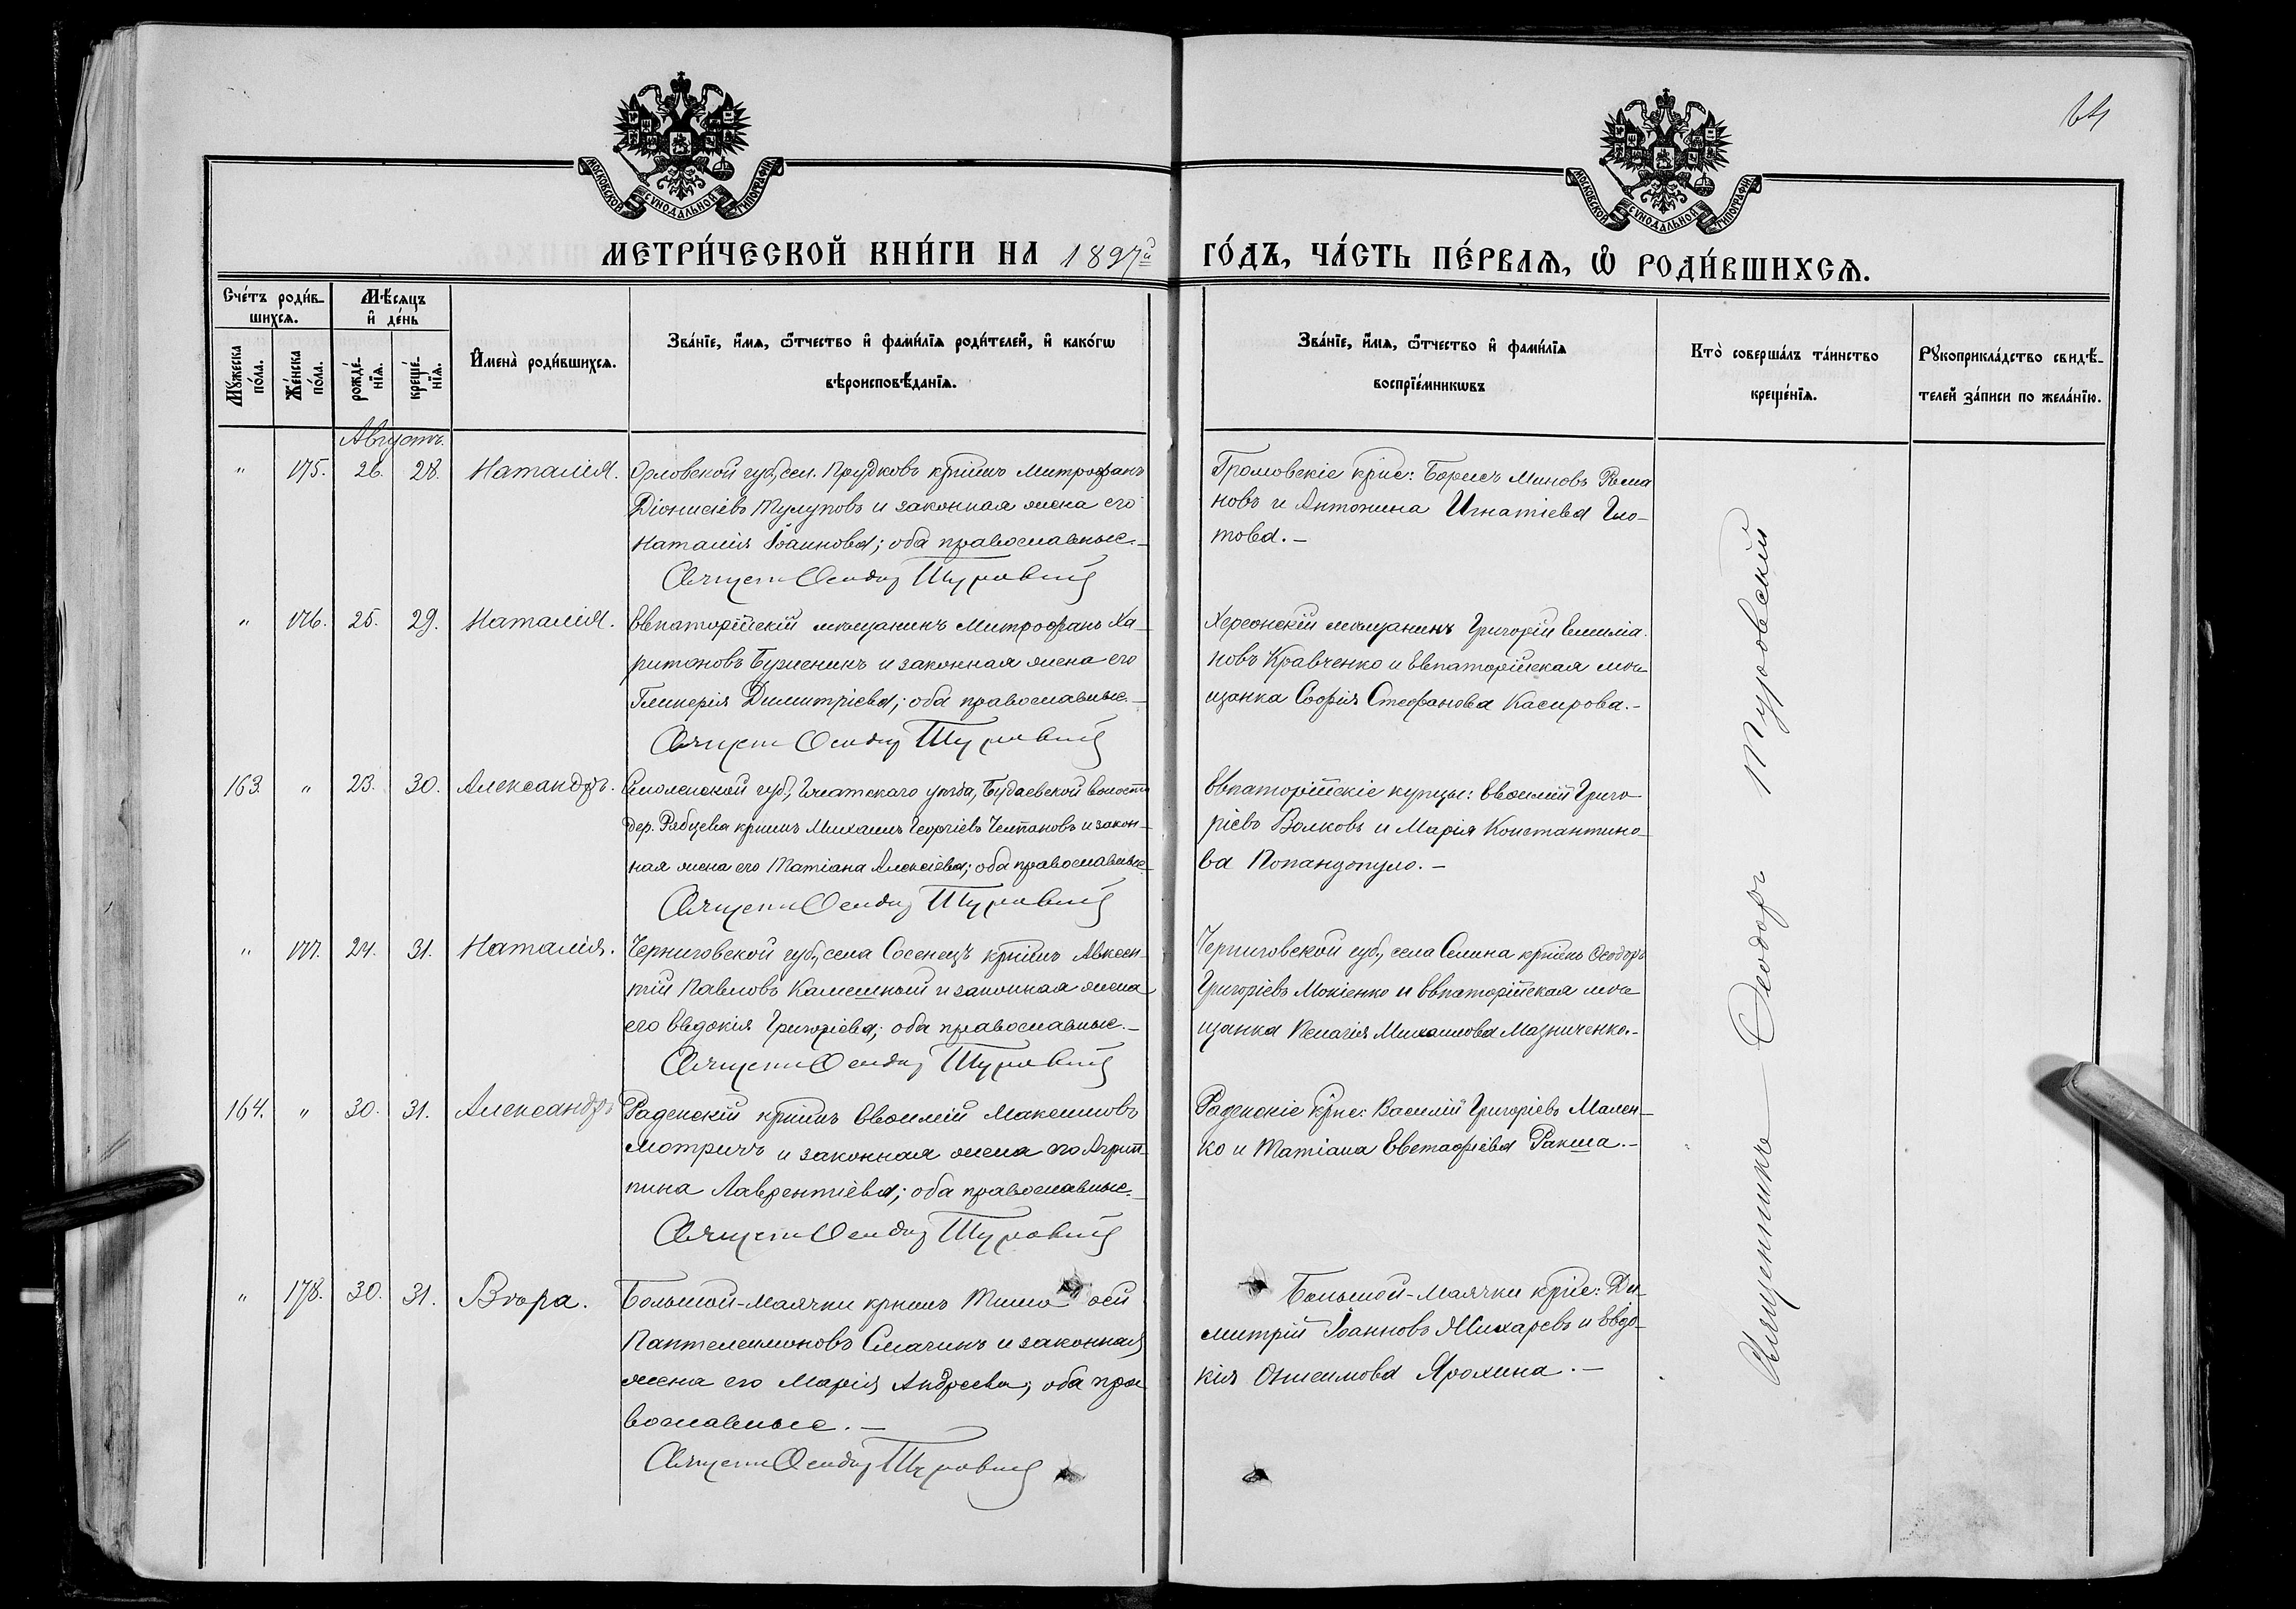 64
МОСКОВСКОЙ СУНОДАЛЬНОЙ ТИПОГРАФІИ
МОСКОВСКОЙ СУНОДАЛЬНОЙ ТИПОГРАФІИ
МЕТРИ́ЧЕСКОЙ КНИ́ГИ НА 1897й ГО́ДЪ, ЧА́СТЬ ПЕ́РВАѦ, Ѡ҆ РОДИ́ВШИХСѦ.
Сче́тъ роди́в-
шихсѧ.
Мꙋ́жеска по́ла.
Же́нска по́ла.
Мѣ́сѧцъ
и҆ де́нь
рожде́-
нїѧ.
креще́-
нїѧ.
И҆мена̀ роди́вшихсѧ.
Зва́нїе, и҆́мѧ, ѻ҆́тчество и҆ фами́лїѧ роди́телей, и҆ како́гѡ
вѣроисповѣ́данїѧ.
Зва́нїе, и҆́мѧ, ѻ҆́тчество и҆ фами́лїѧ
воспрїе́мникѡвъ
Кто̀ соверша́лъ та́инство
креще́нїѧ.
Рꙋкоприкла́дство свидѣ́-
телей за́писи по жела́нїю.
Августъ.
" 175. 26. 28. Наталія.
Орловской губ, сел. Прудковъ крїнинъ Митрофанъ
Діонисіевъ Тулуповъ и законная жена его
Наталія Іоаннова; оба православные.-
Священ Ѳеодор Туровский
Громовскіе крїне: Борисъ Миновъ Рома
новъ и Антонина Игнатіева Гло-
това.-
" 176. 25. 29. Наталія.
Евпаторійскій мѣщанинъ Митрофанъ Ха-
ритоновъ и законная жена его
Гликерія Димитріева; оба православные.-
Священ Ѳеодор Туровский
Херсонскій мѣщанинъ Григорій Емиліа-
новъ Кравченко и Евпаторійская мѣ-
щанка Софія Стефанова Касирова.-
163. " 23. 30. Александръ.
Смоленской губ., Гжатскаго уѣзда, Будаевской волости
дер. Рябцева крнинъ Михаилъ Георгіевъ и закон-
ная жена его Татіана Алексіева; оба православные
Священ Ѳеодор Туровский
Евпаторійскіе купцы: Евѳимій Григо-
ріевъ Волковъ и Марія Константино-
ва Попандопуло.-
" 177. 24. 31. Наталія.
Черниговской губ, села Сосенецъ крїнинъ Авксен-
тій Павловъ и законная жена
его Евдокія Григоріева; оба православные.-
Священ Ѳеодор Туровский
Черниговской губ., села Селина крїнинъ Ѳеодоръ
Григоріевъ Мокіенко и Евпаторійская мѣ-
щанка Пелагія Михаилова Мазниченко.-
164. " 30. 31. Александръ
Раденскій крїнинъ Евѳимій Максимовъ
Мотричъ и законная жена его Агрип-
пина Лаврентіева; оба православные.-
Священ Ѳеодор Туровский
Раденскіе крїне: Василій Григоріевъ Мален-
ко и Татіана Евстафіева Ракша.-
" 178. 30. 31. Вѣра.
Большой-Маячки крнинъ Тимоѳей
Пантелеимоновъ Смагинъ и законная
жена его Марія Андреева; оба пра-
вославные.-
Священ Ѳеодор Туровский
Большой-Маячки крїне: Ди-
митрій Іоанновъ Жихаревъ и Евдо-
кія Онисимова Ярохина.-
Священникъ Ѳеодоръ Туровский